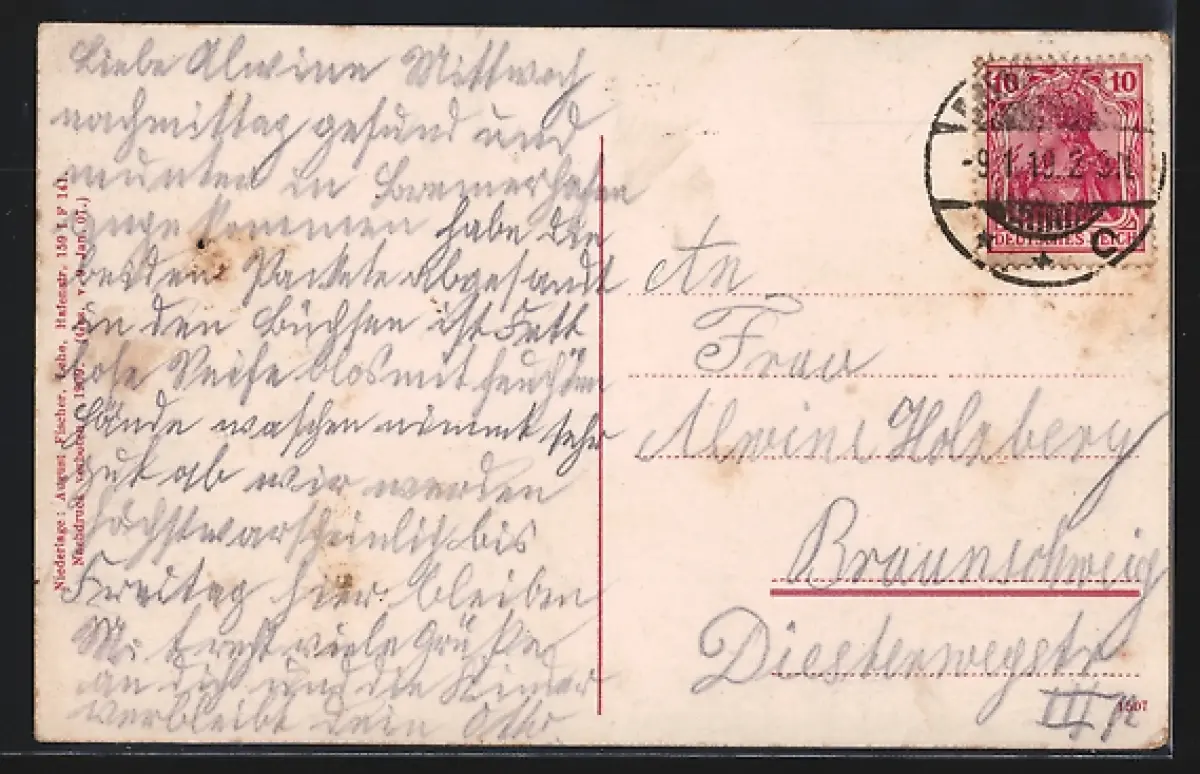 Liebe Alwine Mittwoch
nachmittag gesund und
munter in Bremerhafen
ange kommen habe die
beiden Packete abgesandt
in den Büchsen ist Fett
lose Seife blos mit feuchten
Hände waschen nimmt sehr
gut ab wir werden
höchstwarscheinlich bis
Freitag hier bleiben
viele Grüße
an dich und die Kinder
verbleibt dein Otto.
Niederlage: August Fischer, Lehe, Hafenstr. 159 LF 141.
Nachdruck verboten 1909. Jan. 07.)
10 10
DEUTSCHES REICH
-9.1.19.2-3N.
* * C
An
Frau
Alwine Holzberg
Braunschweig
Diesterwegstr
III
1507